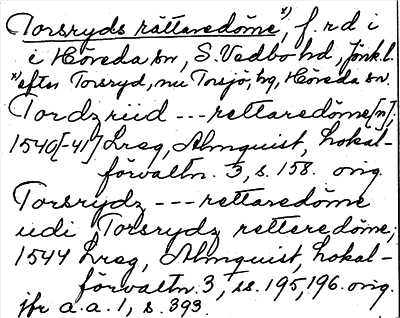 Torsryds rättaredöme*), f.r d i
i Höreda sn, S. Vedbo hd, Jönk.l.
*) efter Torsryd, nu Torsjö, hg, Höreda sn.
Tordzriid --- rettaredöme[n];
1540[-41] Lreg, Almquist, Lokal-
förvaltn. 3, s. 158. orig.
Torsrydz --- rettaredöme
udi Torsrydz retteredöme;
1544 Lreg, Almquist, Lokal-
förvaltn. 3, ss. 195, 196. orig.
jfr a.a. 1, s. 393.